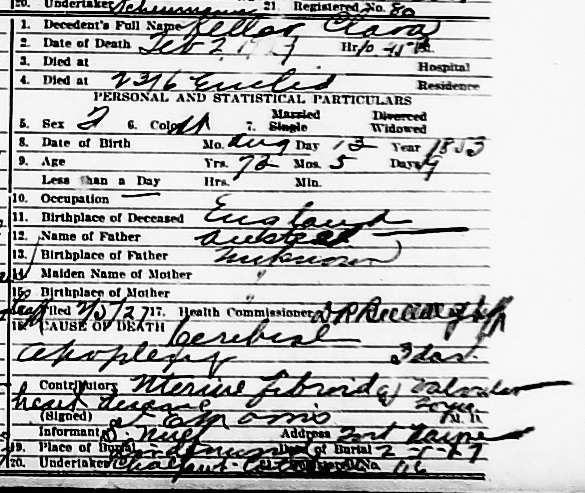 20. Undertaker 21. Registered No. 80
1. Decedent's Full Name Keller Clara
2. Date of Death Feb 2 1927 Hr. 10 45 P.
3. Died at Hospital
4. Died at 2316 Euclid Residence
PERSONAL AND STATISTICAL PARTICULARS
5. Sex F 6. Color W 7. Married Single Divorced Widowed
8. Date of Birth Mo. Aug Day 13 Year 1853
9. Age Yrs. 73 Mos. 5 Days 19
Less than a Day Hrs. Min.
10. Occupation —
11. Birthplace of Deceased England
12. Name of Father
13. Birthplace of Father Unknown
14. Maiden Name of Mother "
15. Birthplace of Mother "
Filed 2/5/27 17. Health Commissioner
18. CAUSE OF DEATH Cerebral
Apoplexy 3 das.
Contributory Uterine fibroid & Valvular
heart disease
(Signed) M. D.
Informant Address Fort Wayne
19. Place of Burial Date of Burial 2-5-27
20. Undertaker No